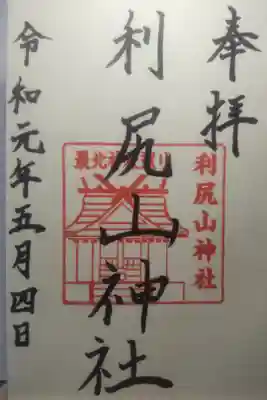 奉拝
利尻山神社
利尻山神社
令和元年五月四日